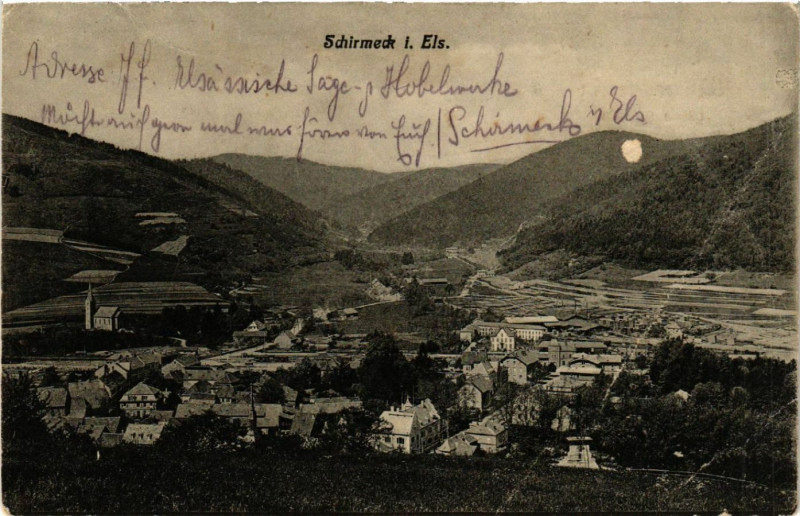 Schirmeck i. Els.
Adresse Elsässische Säge- & Hobelwerke
Möchte auch gern mal was hören von Euch / Schirmeck i/ Els